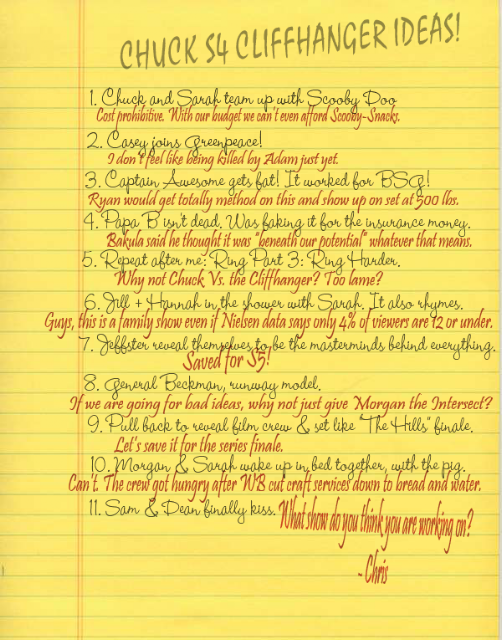 CHUCK S4 CLIFFHANGER IDEAS!
1. Chuck and Sarah team up with Scooby Doo
Cost prohibitive. With our budget we can't even afford Scooby-Snacks.
2. Casey joins Greenpeace!
I don't feel like being killed by Adam just yet.
3. Captain Awesome gets fat! It worked for BSG!
Ryan would get totally method on this and show up on set at 500 lbs.
4. Papa B isn't dead. Was faking it for the insurance money.
Bakula said he thought it was "beneath our potential" whatever that means.
5. Repeat after me: Ring Part 3: Ring Harder.
Why not Chuck Vs. the Cliffhanger? Too lame?
6. Jill + Hannah in the shower with Sarah. It also rhymes.
Guys, this is a family show even if Nielsen data says only 4% of viewers are 12 or under.
7. Jeffster reveal themselves to be the masterminds behind everything.
Saved for S5!
8. General Beckman, runway model.
If we are going for bad ideas, why not just give Morgan the Intersect?
9. Pull back to reveal film crew & set like "The Hills" finale.
Let's save it for the series finale.
10. Morgan & Sarah wake up in bed together, with the pig.
Can't. The crew got hungry after WB cut craft services down to bread and water.
11. Sam & Dean finally kiss. What show do you think you are working on?
~ Chris